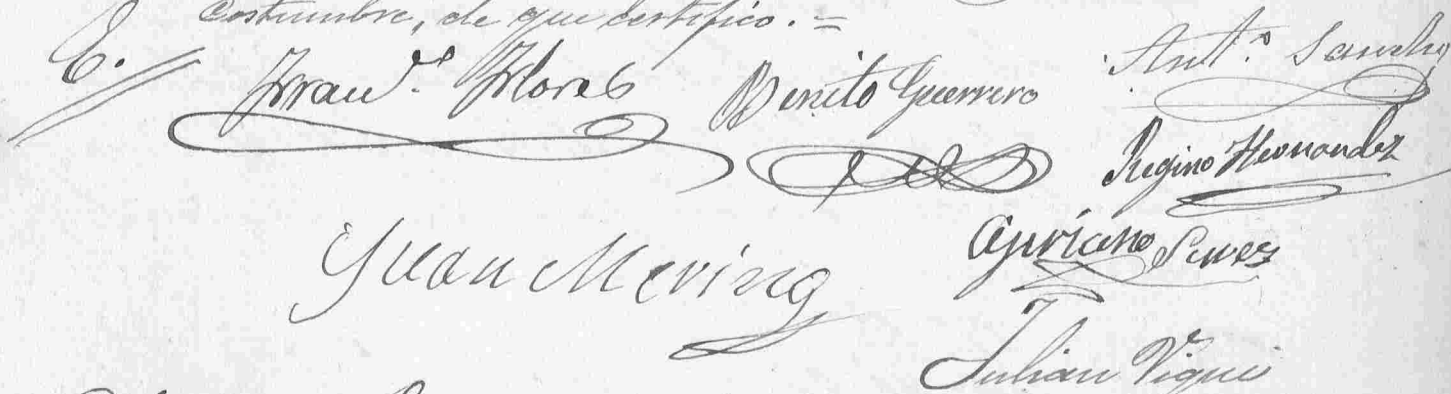 costumbre, de que certifico.=
E. Fran.co Flores Benito Guerrero Ant.o Sanchez
Regino Hernandez
Juan Mering Cipriano
Julian Viqui